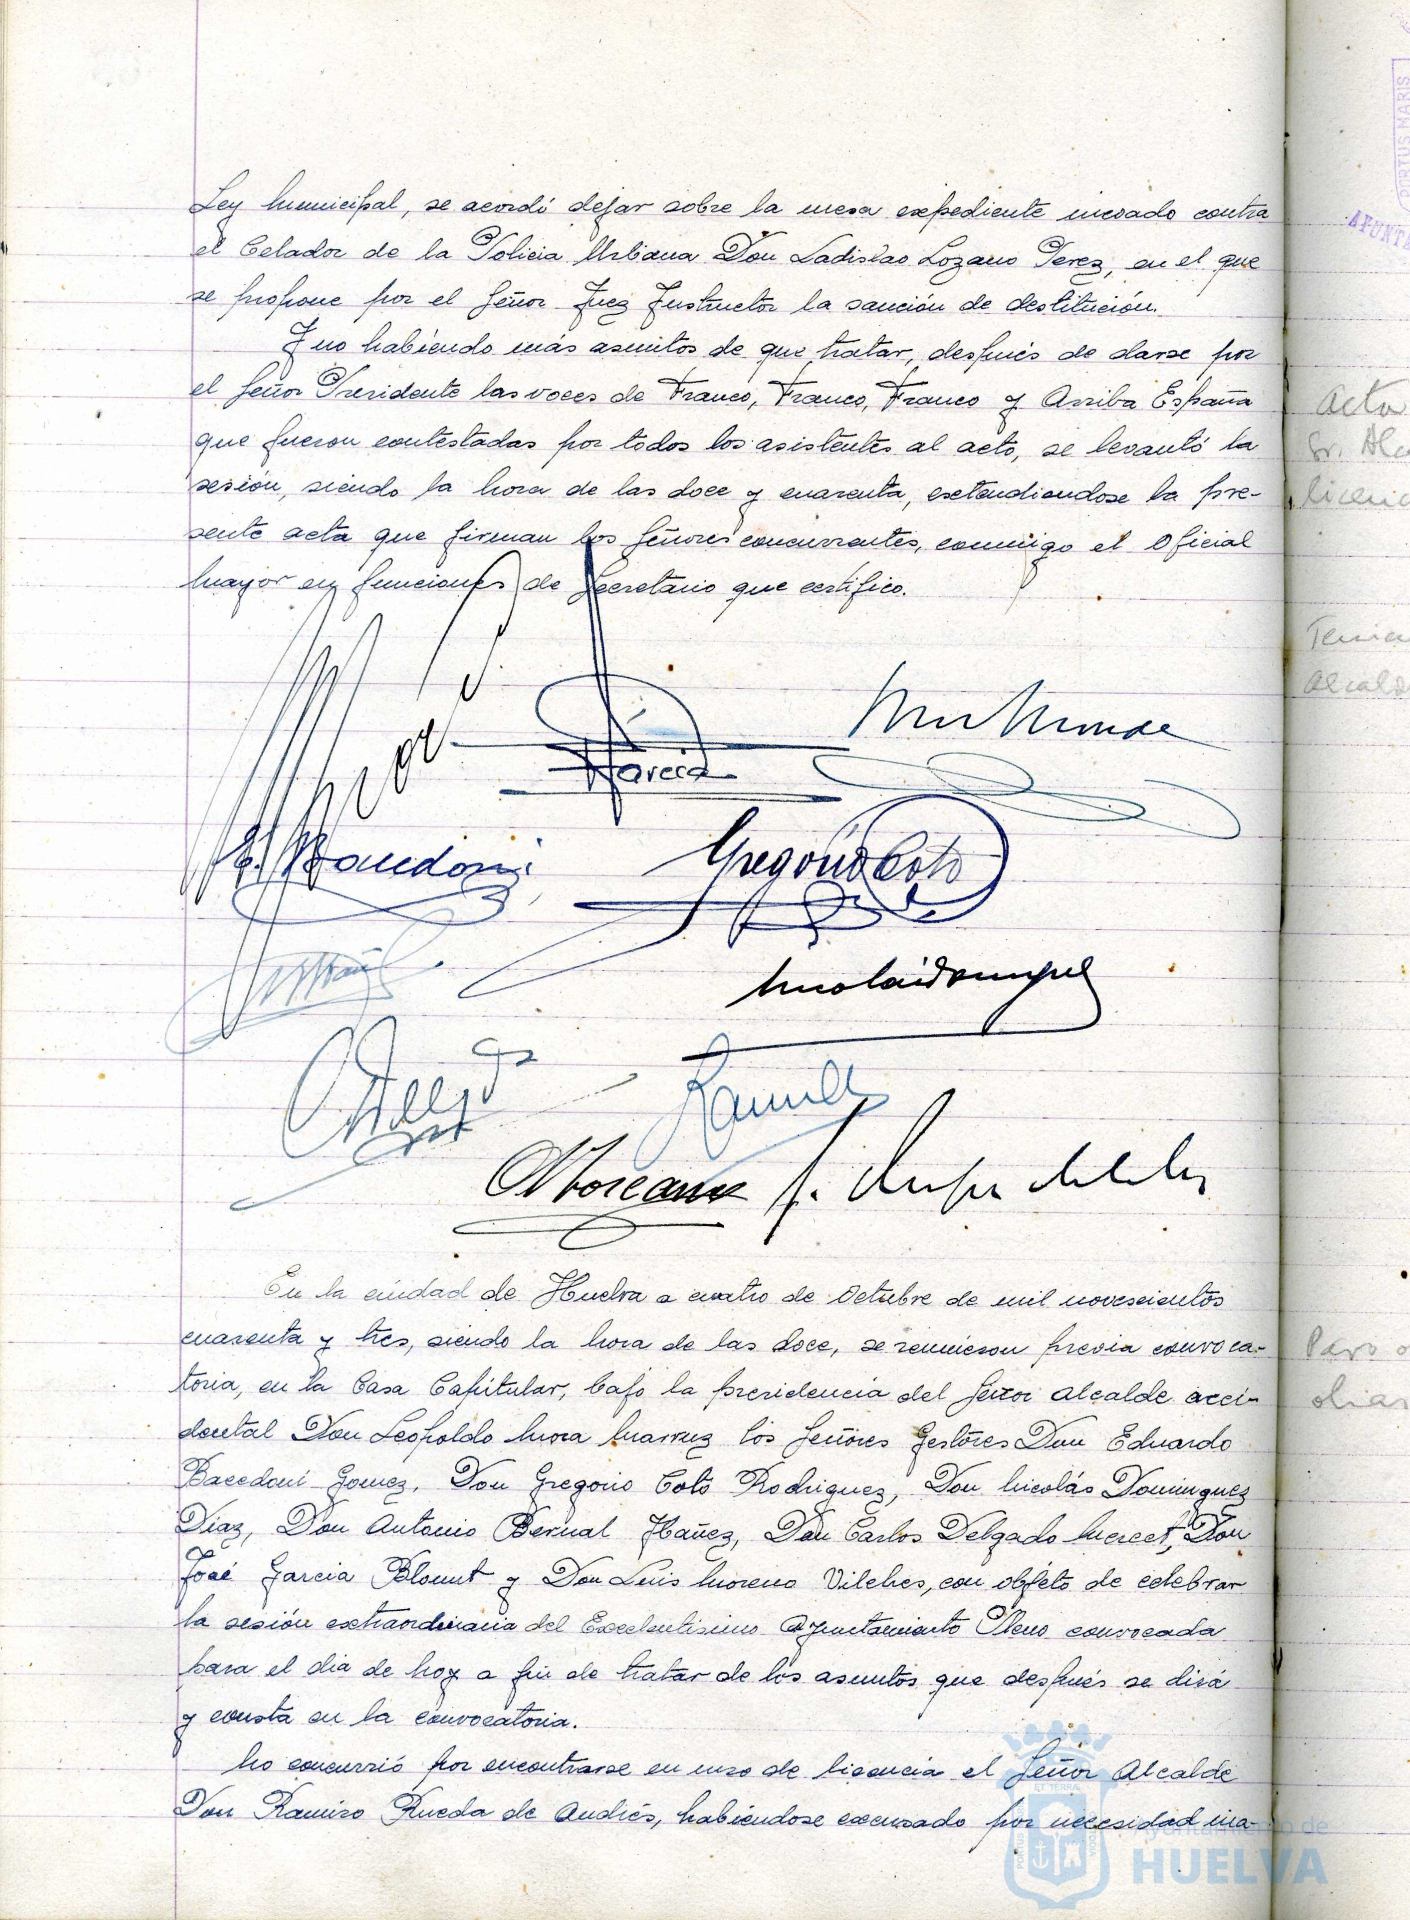 Ley Municipal, se acordó dejar sobre la mesa expediente incoado contra
el Celador de la Policia Urbana Don Ladislao Lozano Perez, en el que
se propone por el Señor Juez Instructor la sanción de destitución.
Y no habiendo más asuntos de que tratar, después de darse por
el Señor Presidente las voces de Franco, Franco, Franco y Arriba España
que fueron contestadas por todos los asistentes al acto, se levantó la
sesión, siendo la hora de las doce y cuarenta, extendiendose la pre-
sente acta que firman los Señores concurrentes, conmigo el Oficial
Mayor en funciones de Secretario que certifico.
Garcia
E. Bacedoni
Gregorio Coto
Nicolas Dominguez
En la ciudad de Huelva a cuatro de Octubre de mil novescientos
cuarenta y tres, siendo la hora de las doce, se reunieron previa convoca-
toria, en la Casa Capitular, bajo la presidencia del Señor Alcalde acci-
dental Don Leopoldo Mora los Señores Gestores Don Eduardo
Bacedoni Gomez, Don Gregorio Coto Rodriguez, Don Nicolás Dominguez
Diaz, Don Antonio Bernal Ibañez, Don Carlos Delgado Don
José Garcia Blount y Don Luis Moreno Vilches, con objeto de celebrar
la sesión extraordinaria del Excelentisimo Ayuntamiento Pleno convocada
para el dia de hoy a fin de tratar de los asuntos que después se dirá
y consta en la convocatoria.
No concurrió por encontrarse en uso de licencia el Señor Alcalde
Don Ramiro Rueda de Andrés, habiendose excusado por necesidad ina-
Ayuntamiento de
HUELVA
PORTUS MARIS
Acta
Sr. Alca
licenc
Tenien
Alcald
Paro o